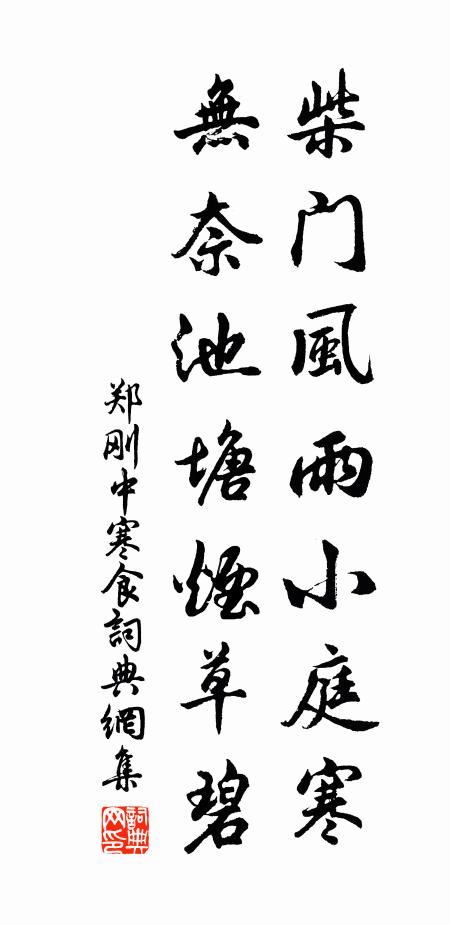 柴门風雨小庭寒
無奈池塘煙草碧
郑刚中寒食詞典網集
詞典网印